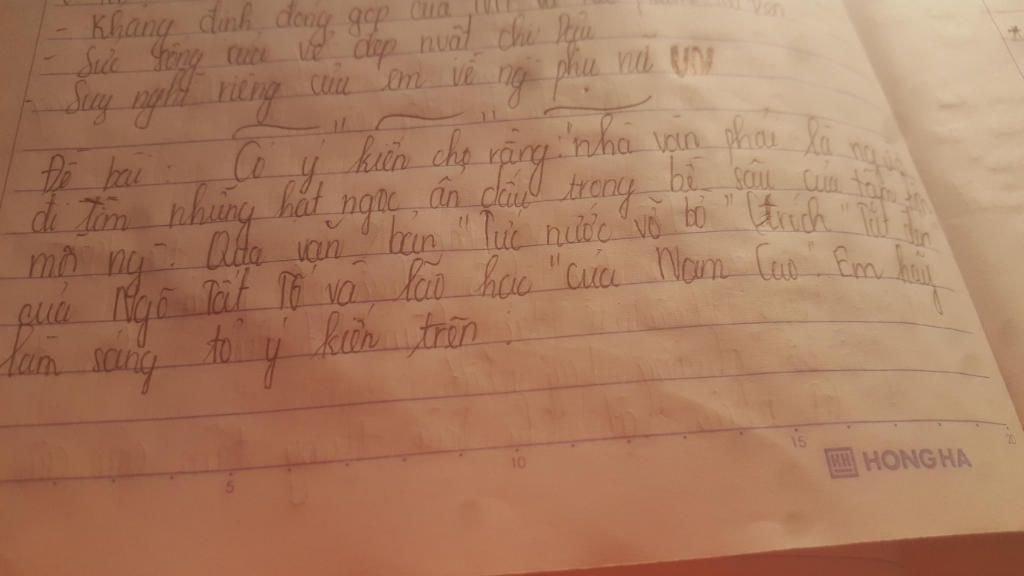 - Khẳng định đóng góp của
- Sức sống cười vẻ đẹp nhất chí Hữu
- Suy nghĩ riêng của em về ng phụ nữ VN
Đề bài: Có ý kiến cho rằng: "nhà văn phải là người
đi tìm những hạt ngọc ẩn dấu trong bề sâu của tâm hồn
mỗi ng". Qua văn bản "Tức nước vỡ bờ" (trích "Tắt đèn"
của Ngô Tất Tố và lão hạc "của Nam Cao". Em hãy
làm sáng tỏ ý kiến trên.
5
10
15
20
HH HONG HA